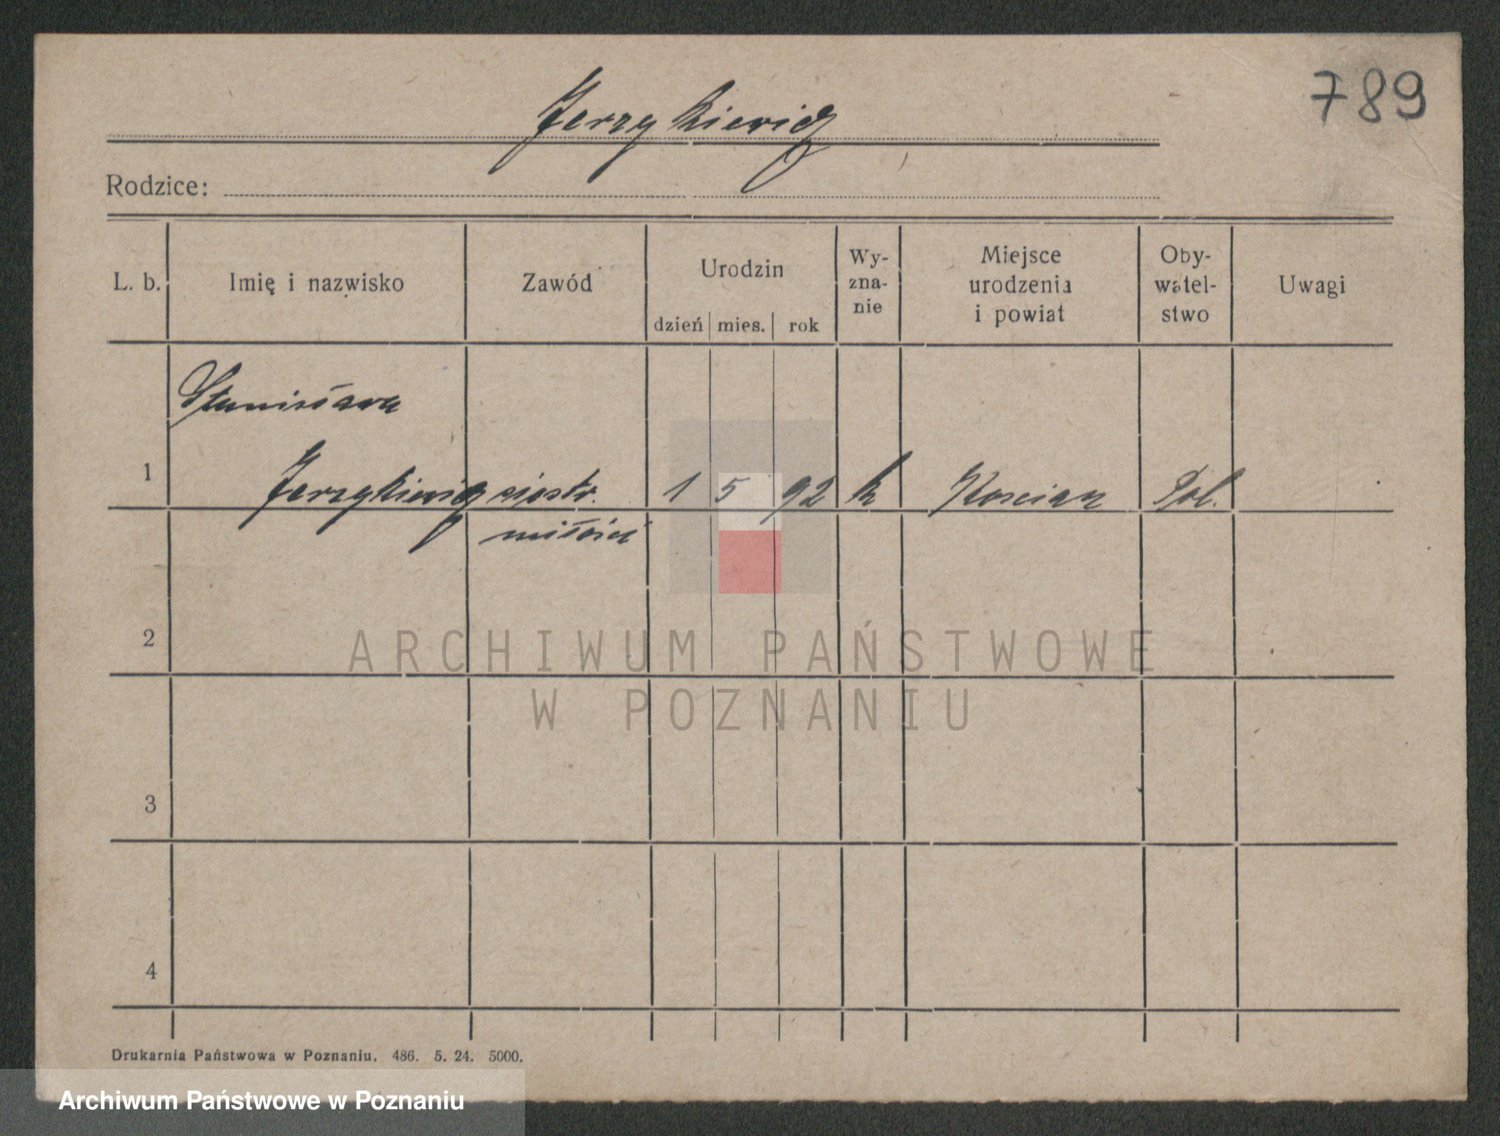 789
Jerzykiewicz
Rodzice:
L. b.
Imię i nazwisko
Zawód
Urodzin
dzień mies. rok
Wy-
zna-
nie
Miejsce
urodzenia
i powiat
Oby-
watel-
stwo
Uwagi
Stanisława
1 Jerzykiewicz siostr. 1 5 92 k Kościan Pol.
miłości
2
ARCHIWUM PAŃSTWOWE
W POZNANIU
3
4
Drukarnia Państwowa w Poznaniu. 486. 5. 24. 5000.
Archiwum Państwowe w Poznaniu